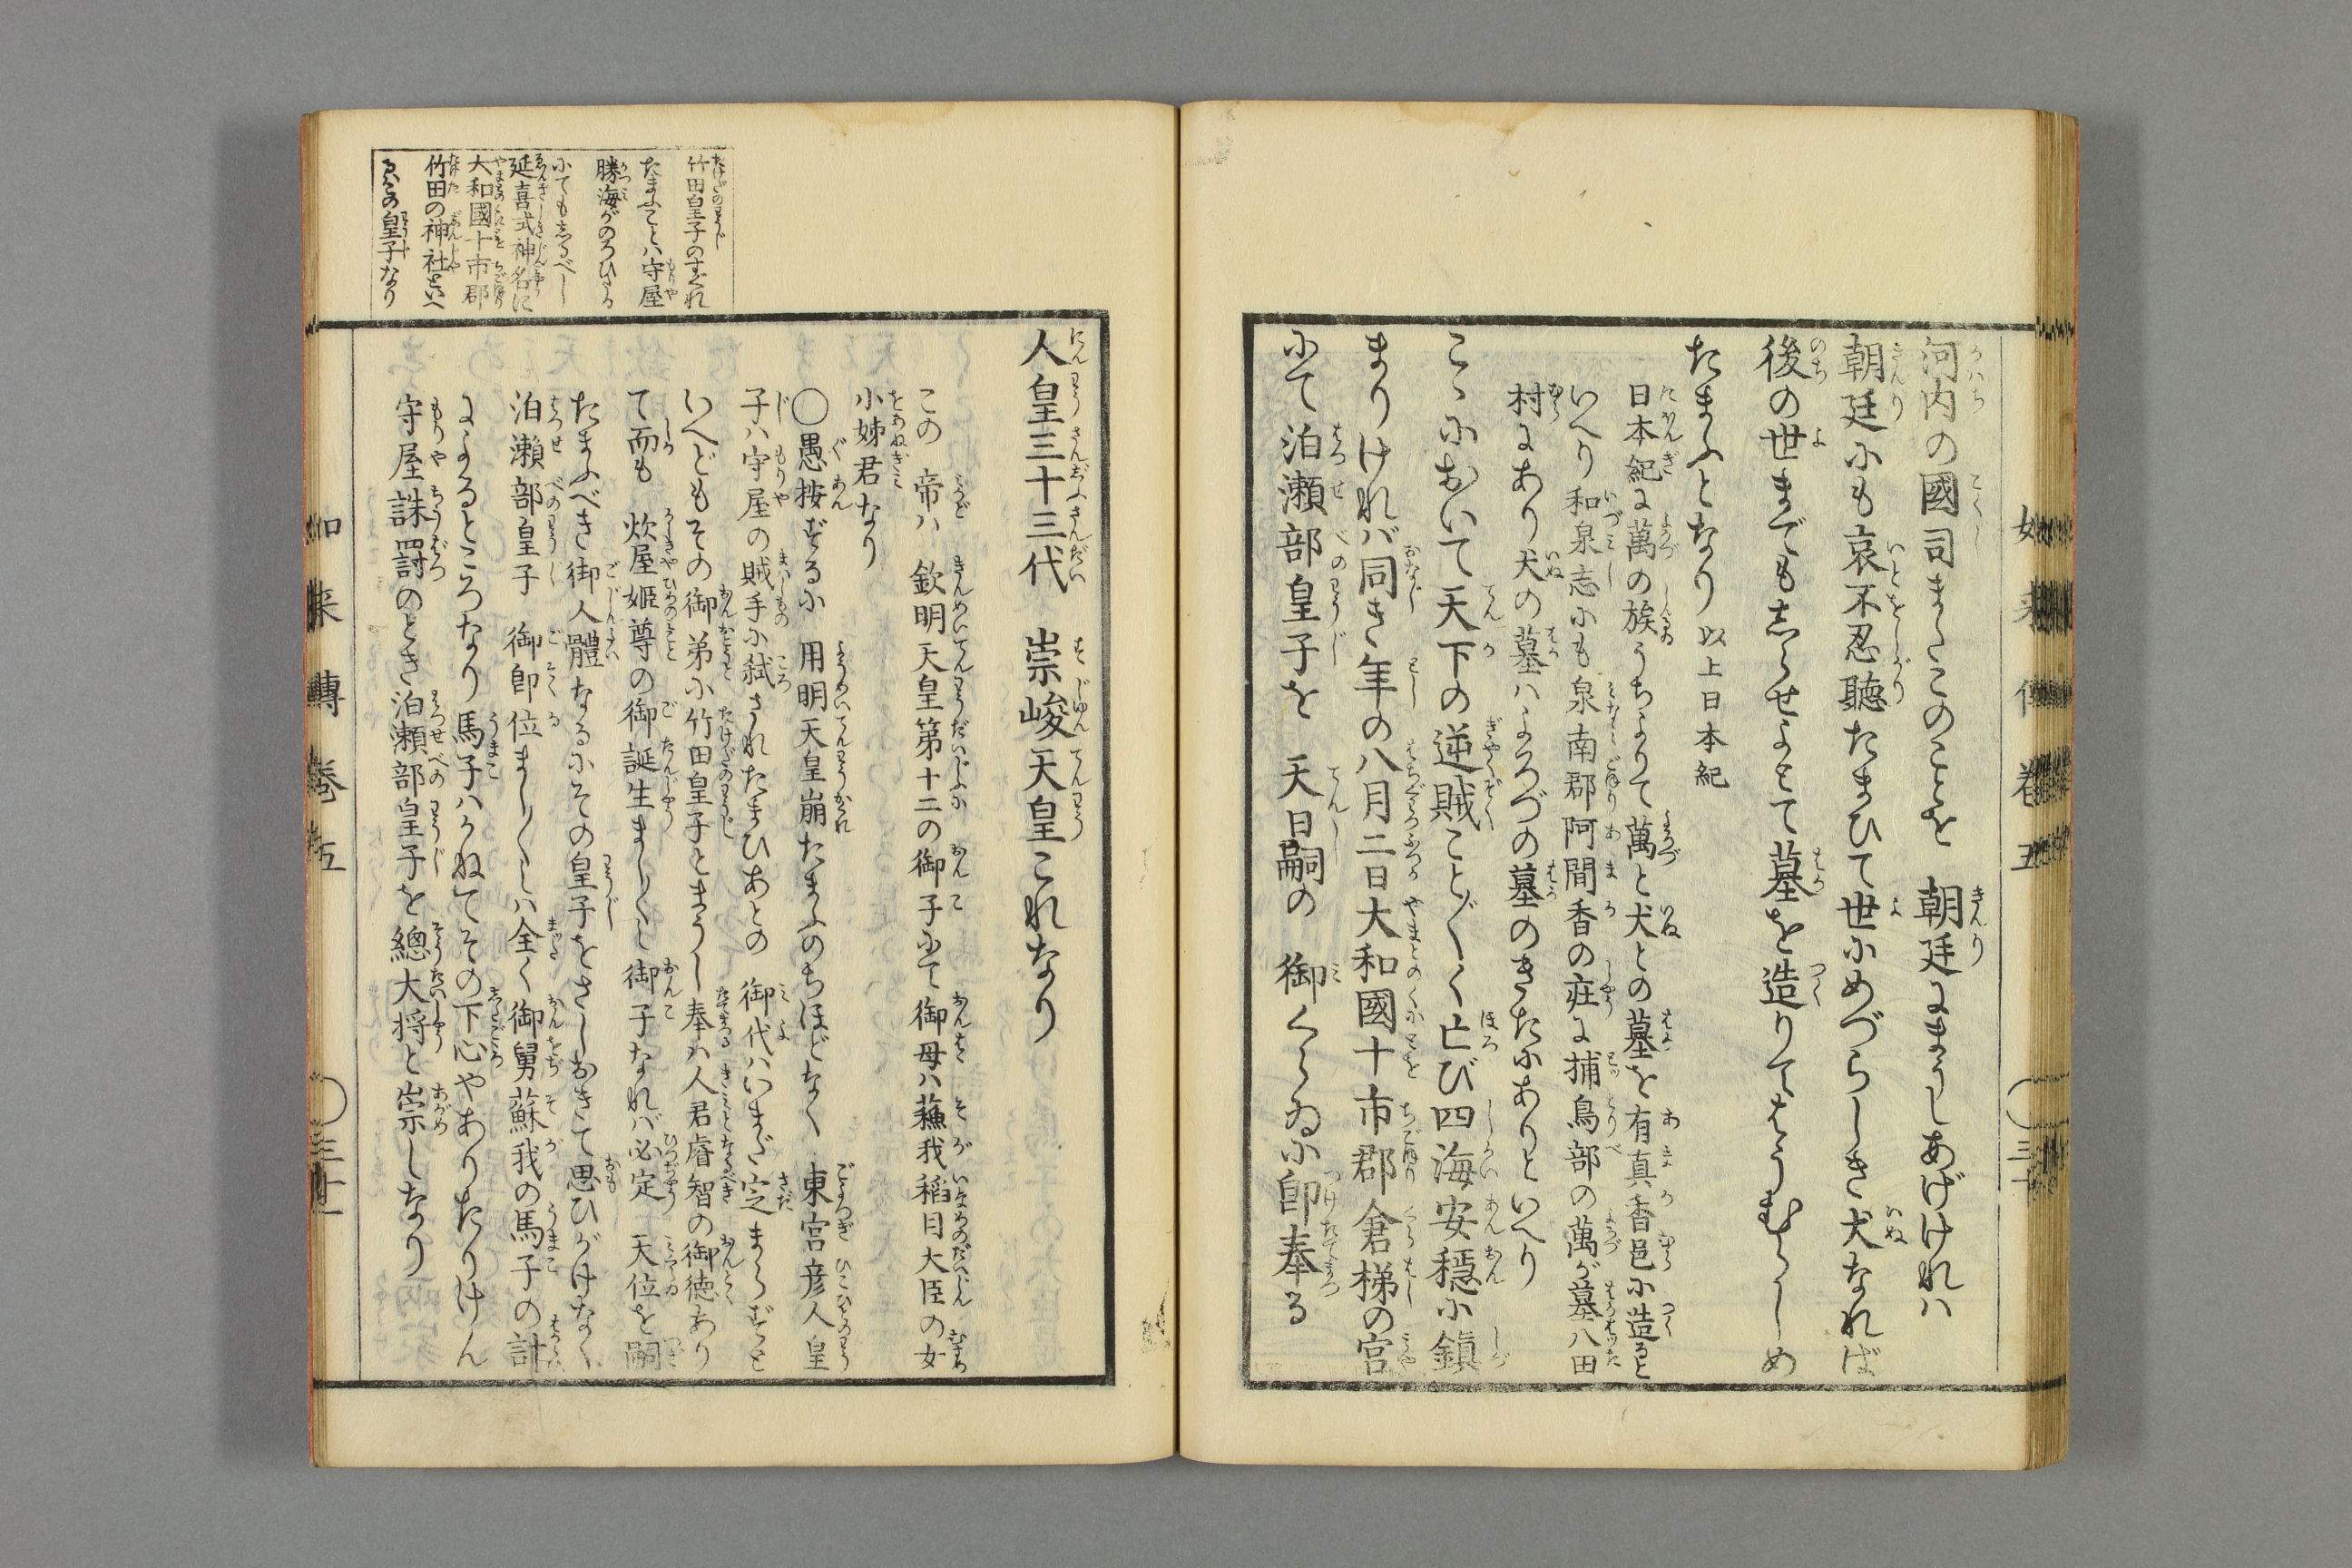 河内の國司またこのことを　朝廷にまうしあげけれハ
朝廷にも哀不忍聴たまひて世にめづらしき犬なれば
後の世までもしらせよとて墓を造りてはうむらしめ
たまふとなり 以上日本紀
日本紀に萬の族うちよりて萬と犬との墓を有真香邑に造ると
いへり和泉志にも泉南郡阿間香の荘に捕鳥部の萬が墓八田
村にあり犬の墓ハよろづの墓のきたにありといへり
こゝにおいて天下の逆賊こと〴〵く亡び四海安穏に鎮
まりけれバ同き年の八月二日大和國十市郡倉梯の宮
にて泊瀬部皇子を　天日嗣の　御くらゐに即奉る
如来傳巻五　三十
人皇三十三代　崇峻天皇これなり
この　帝ハ　欽明天皇第十二の御子にて御母ハ蘇我稲目大臣の女
小姉君なり
〇愚按ずるに　用明天皇崩たまふのちほどなく　東宮彦人皇
子ハ守屋の賊手に弑されたまひあとの　御代ハいまだ定まらずと
いへどもその御弟に竹田皇子とまうし奉ハ人君睿智の御徳あり
て而も　炊屋姫尊の御誕生まし〳〵し御子なれバ必定　天位を嗣
たまふべき御人體なるにその皇子をさしおきて思ひがけなく
泊瀬部皇子　御即位まし〳〵しハ全く御舅蘇我の馬子の計
によるところなり馬子ハかねてその下心やありたりけん
守屋誅罸のとき泊瀬部皇子を總大将と崇しなり
竹田皇子のすぐれ
たまふことハ守屋
勝海がのろひたる
にてもしるべし
延喜式神名に
大和國十市郡
竹田の神社といへ
るハこの皇子なり
如来傳巻五　三十一